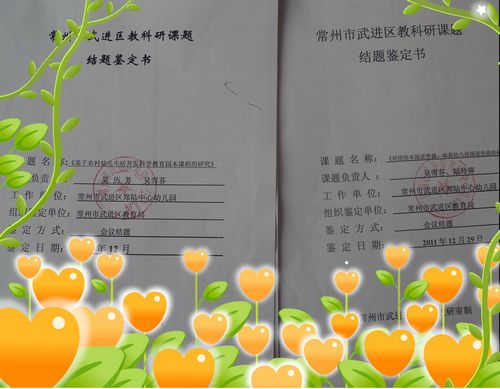 常州市武进区教科研课题
结题鉴定书
课题名称:《基于农村幼儿生活开发科学教育园本课程的研究》
课题负责人: 夏历芳 吴雪芬
工作单位: 常州市武进区郑陆中心幼儿园
组织鉴定单位: 常州市武进区教育局
鉴定方式: 会议结题
鉴定日期: 年 12 月
常州市教科研课题
结题鉴定书
课题名称:
课题负责人: 吴雪芬
工作单位: 常州市武进区郑陆中心幼儿园
组织鉴定单位: 常州市武进区教育局
鉴定方式: 会议结题
鉴定日期: 2011 年 12 月 29 日
常州市武进 研室制